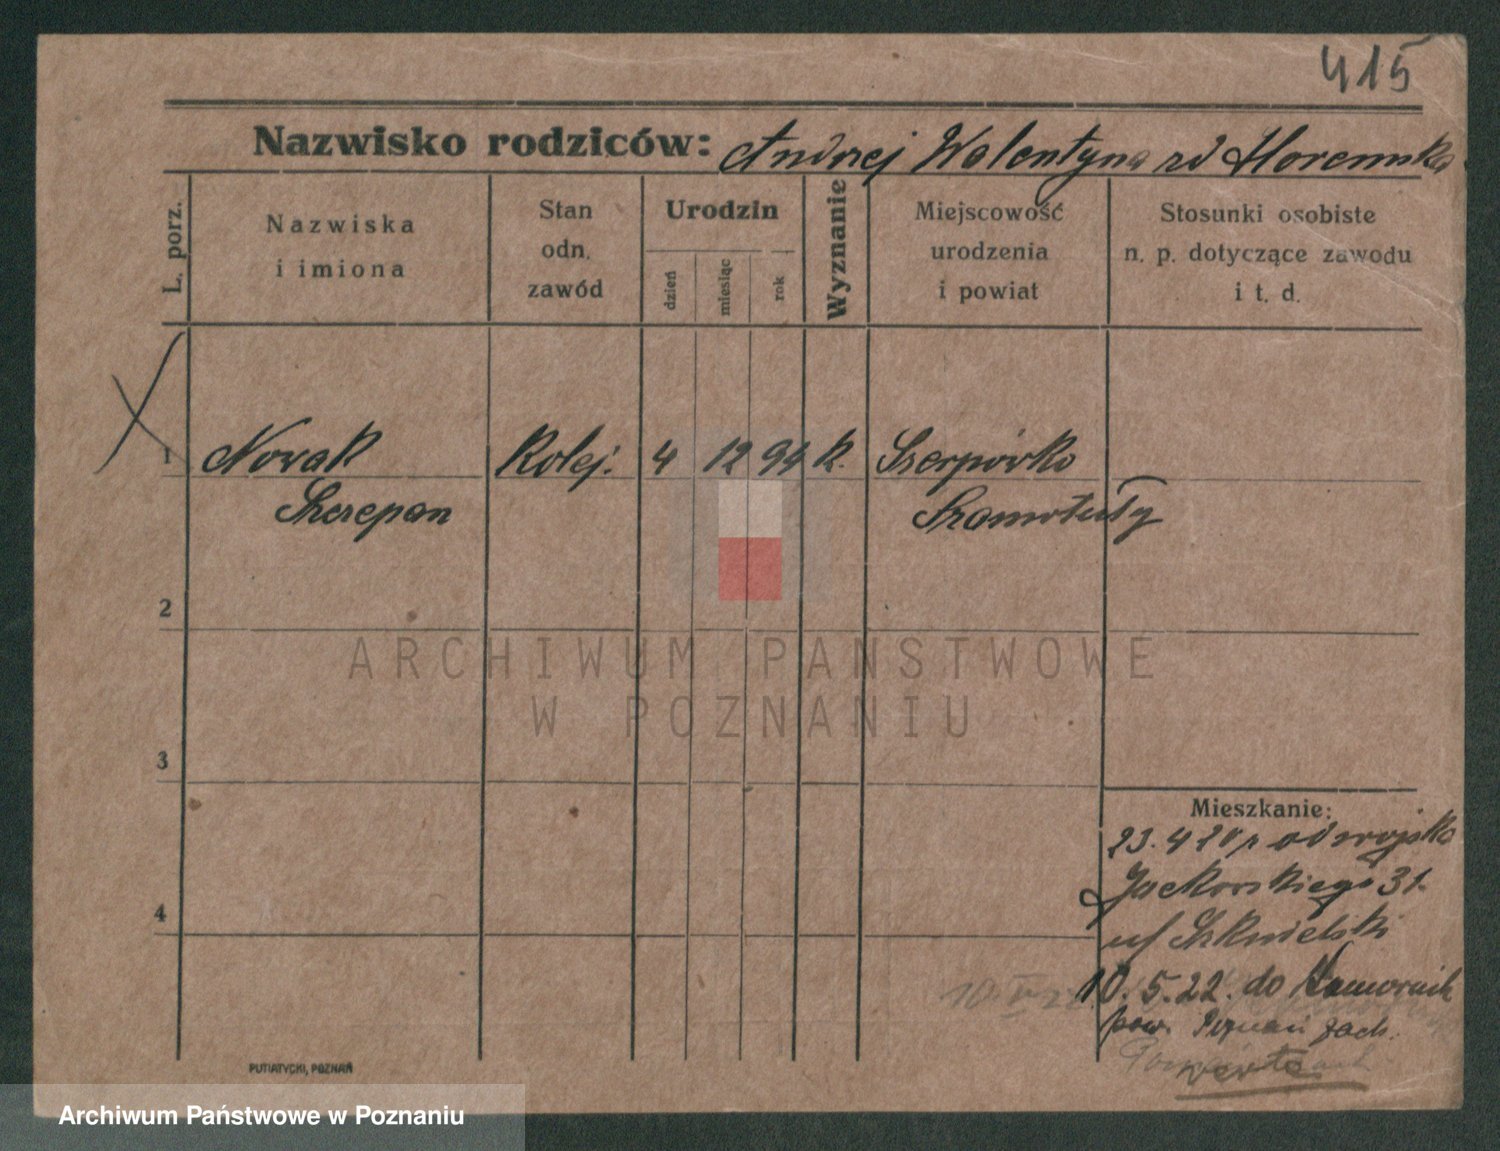 415
Nazwisko rodziców: Andrzej Walentyna zd
L. porz.
Nazwiska
i imiona
Stan
odn.
zawód
Urodzin
dzień
miesiąc
rok
Wyznanie
Miejscowość
urodzenia
i powiat
Stosunki osobiste
n. p. dotyczące zawodu
i t. d.
1
Novak
Kolej.
4
12
94
k.
Szczepan
Szamotuły
2
ARCHIWUM PAŃSTWOWE
W POZNANIU
3
Mieszkanie:
23. 4 20 od wojska
Jackowskiego 31.
4
10. 5. 22. do Komornik
pow. Poznań zach.
verte
PUTIATYCKI, POZNAŃ
Archiwum Państwowe w Poznaniu